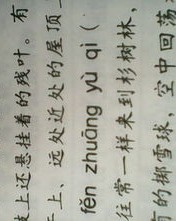 上还悬挂着的残叶。有
上、远处近处的屋顶
fěn zhuāng yù qì (
往常一样来到杉树林，
的绑雪球，空中回荡